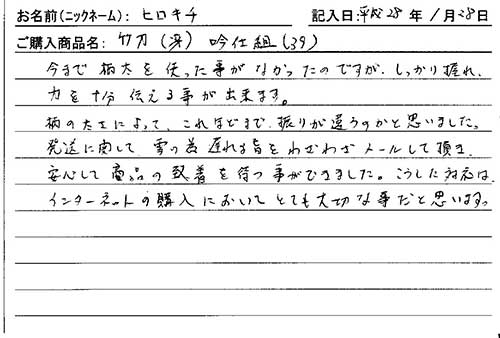 お名前(ニックネーム): ヒロキチ 記入日:平成28年 1月28日
ご購入商品名: 竹刀(冴) 吟仕組(39)
今まで柄太を使った事がなかったのですが、しっかり握れ、
力を十分伝える事が出来ます。
柄の太さによって、これほどまで振りが違うのかと思いました。
発送に関して 雪の為遅れる旨をわざわざメールして頂き、
安心して商品の到着を待つ事ができました。こうした対応は
インターネットの購入において とても大切な事だと思います。